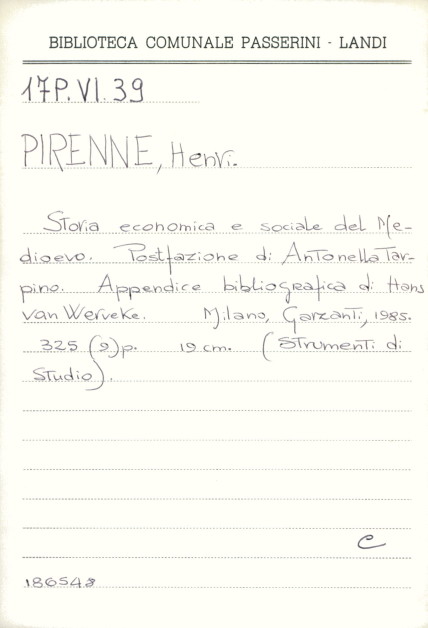 BIBLIOTECA COMUNALE PASSERINI - LANDI
17P.VI.39
PIRENNE, Henri.
Storia economica e sociale del Me-
dioevo. Postfazione di Antonella Tar-
pino. Appendice bibliografica di Hans
van Werveke. Milano, Garzanti, 1985.
325 (2) p. 19 cm. (Strumenti di
Studio).
C